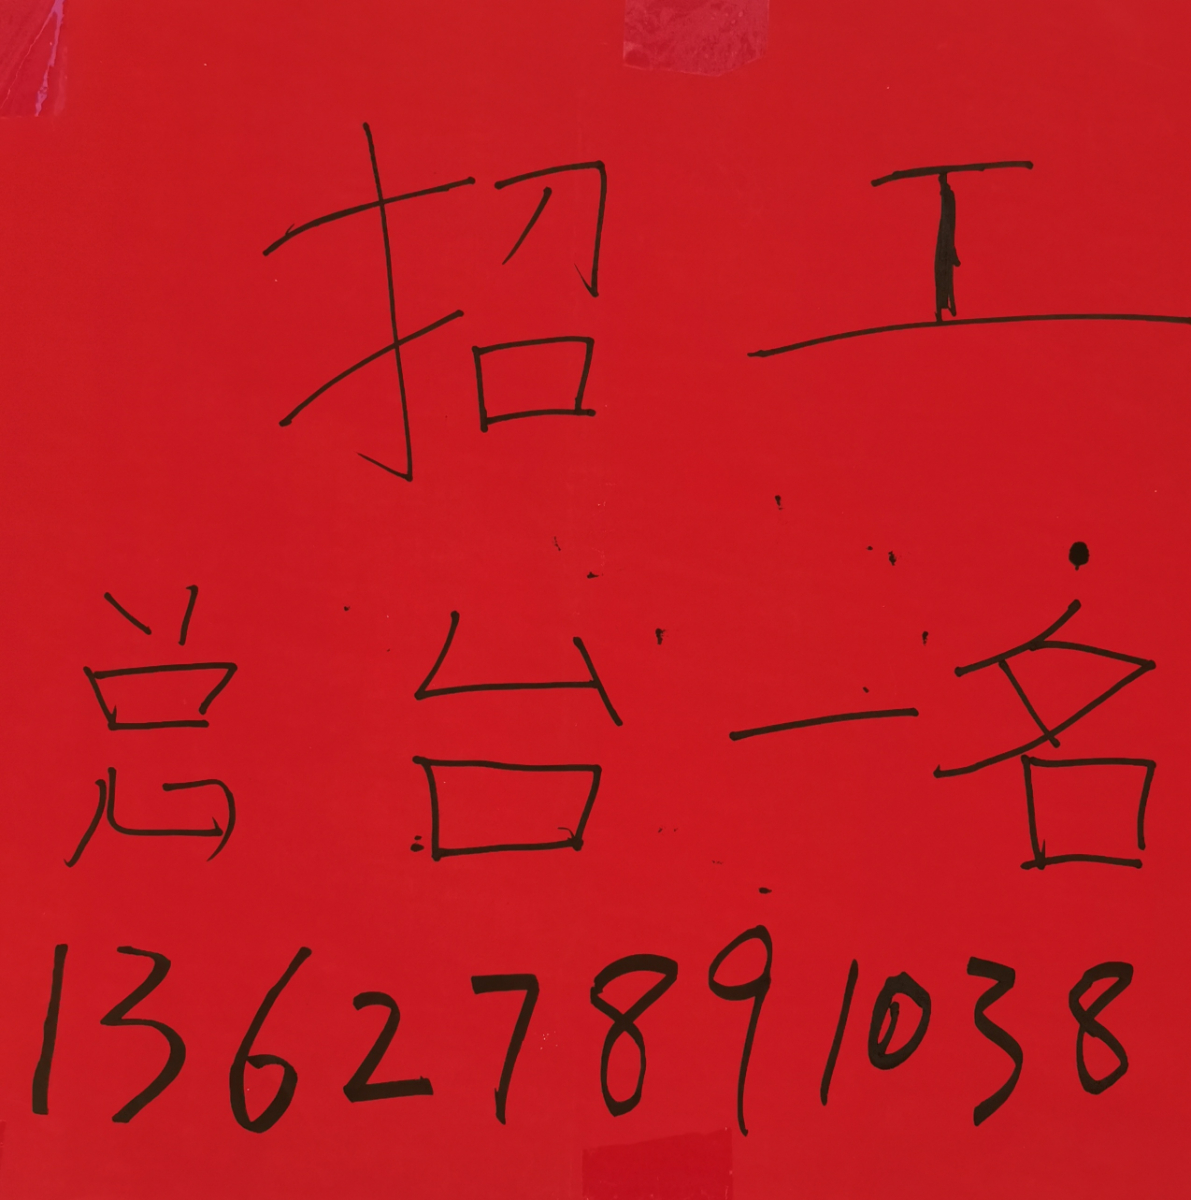 招工
总台一名
13627891038